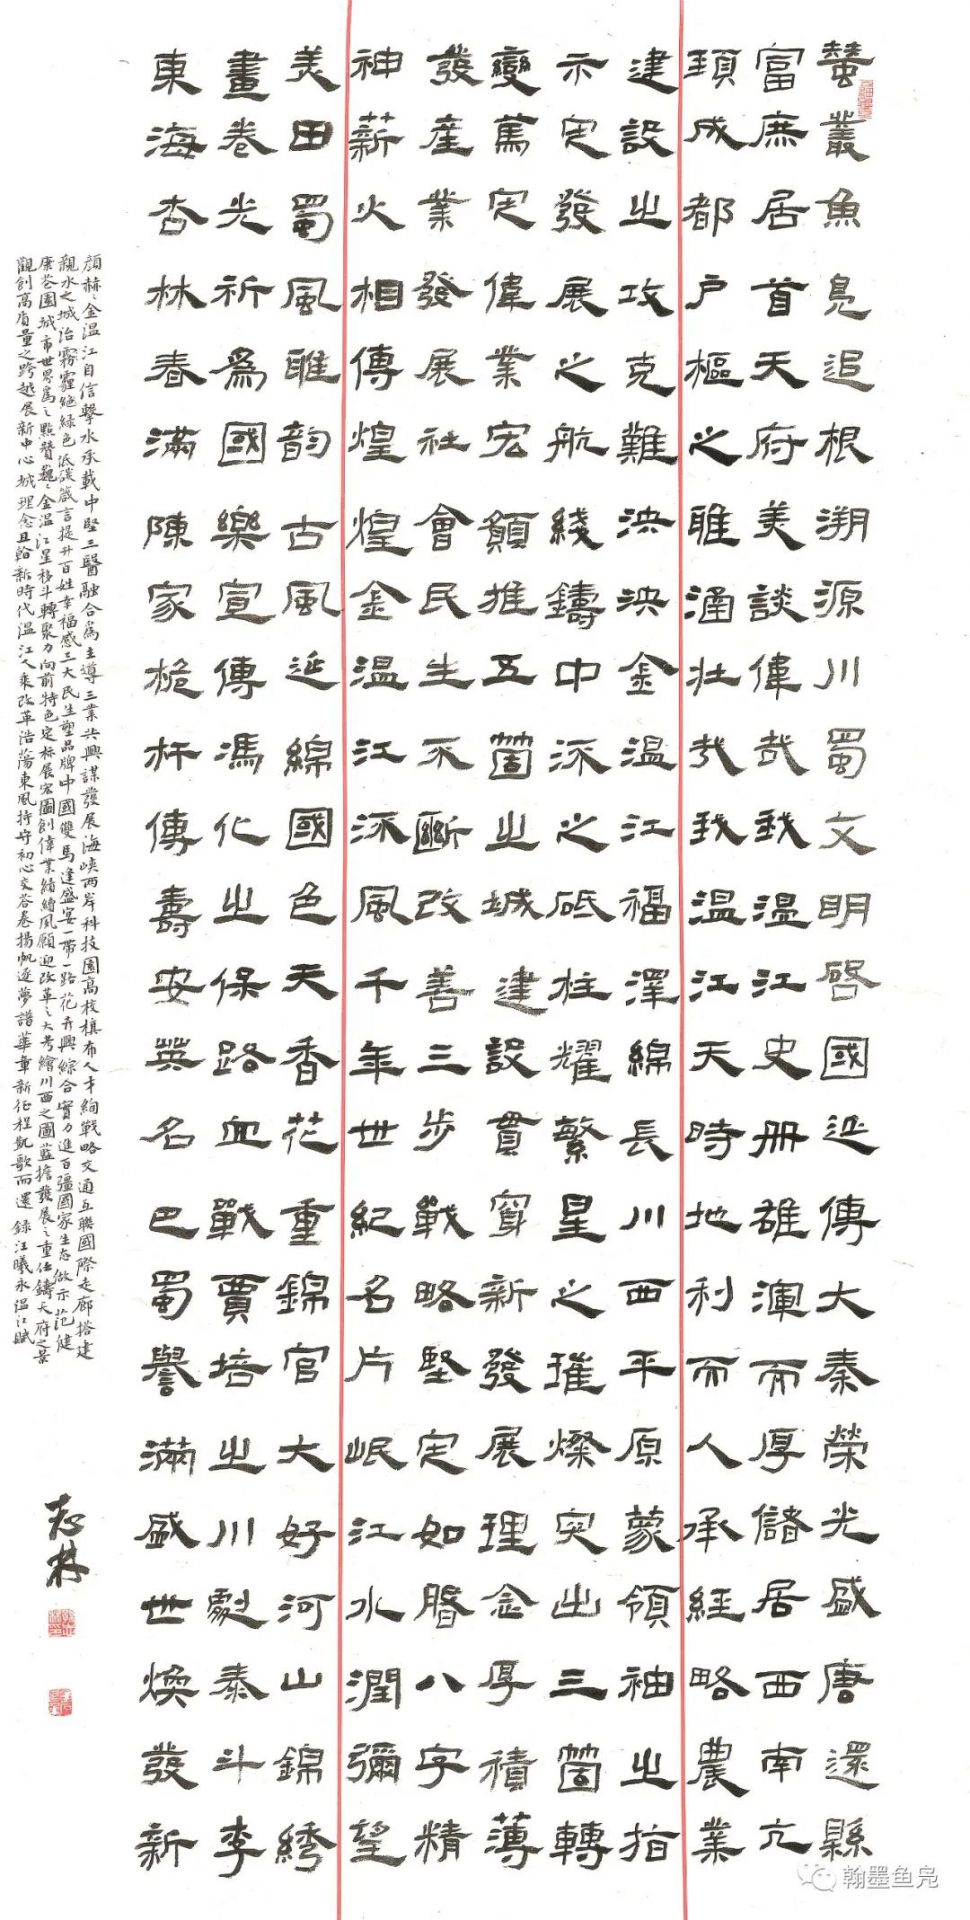 蠶叢魚鳧追根溯源川蜀文明啓國延傳大秦榮光盛唐還縣
富庶居首天府美談偉哉溫江史冊雄渾而厚儲居西南亢
頊成都户樞之雎涌壯哉我溫江天時地利而人承經略農業
建設之攻克難泱泱金溫江福澤綿長川西平原蒙領袖之指
示定發展之航綫鑄中流之砥柱耀繁星之璀燦突出三箇轉
變篤定偉業宏願推五箇之城建設貫穿新發展理念厚積薄
發產業發展社會民生不斷改善三步戰略堅定如磐八字精
神薪火相傳煌煌金溫江流風千年世紀名片岷江水潤彌望
美田蜀風雅韵古風延綿國色天香花重錦官大好河山錦綉
畫卷光祈爲國樂宣傳馮化之保路血戰賈培之川劇泰斗李
東海杏林春滿陳家桅杆傳壽安英名巴蜀譽滿盛世煥發新
顏赫々金溫江自信擊水承載中堅三醫融合爲主導三業共興謀發展海峽兩岸科技園高校積布人才絢戰略交通互聯國際走廊搭建
親水之城治霧霾絶緑色低碳箴言提升百姓幸福感三大民生塑品牌中國雙馬逢盛宴一帶一路花卉興綜合實力進百疆國家生态做示范健
康花園城市世界爲之點贊巍々金溫江星移斗轉聚力向前特色定标展宏圖創偉業績績夙願迎改革之大考繪川西之圖藍擔發展之重任鑄天府之景
觀創高质量之跨越展新中心城理念且翰新時代溫江人乘改革浩蕩東風持守初心交荅卷揚帆逐夢譜華章新征程凱歌而還 録汪曦永温江賦
志林
翰墨鱼凫